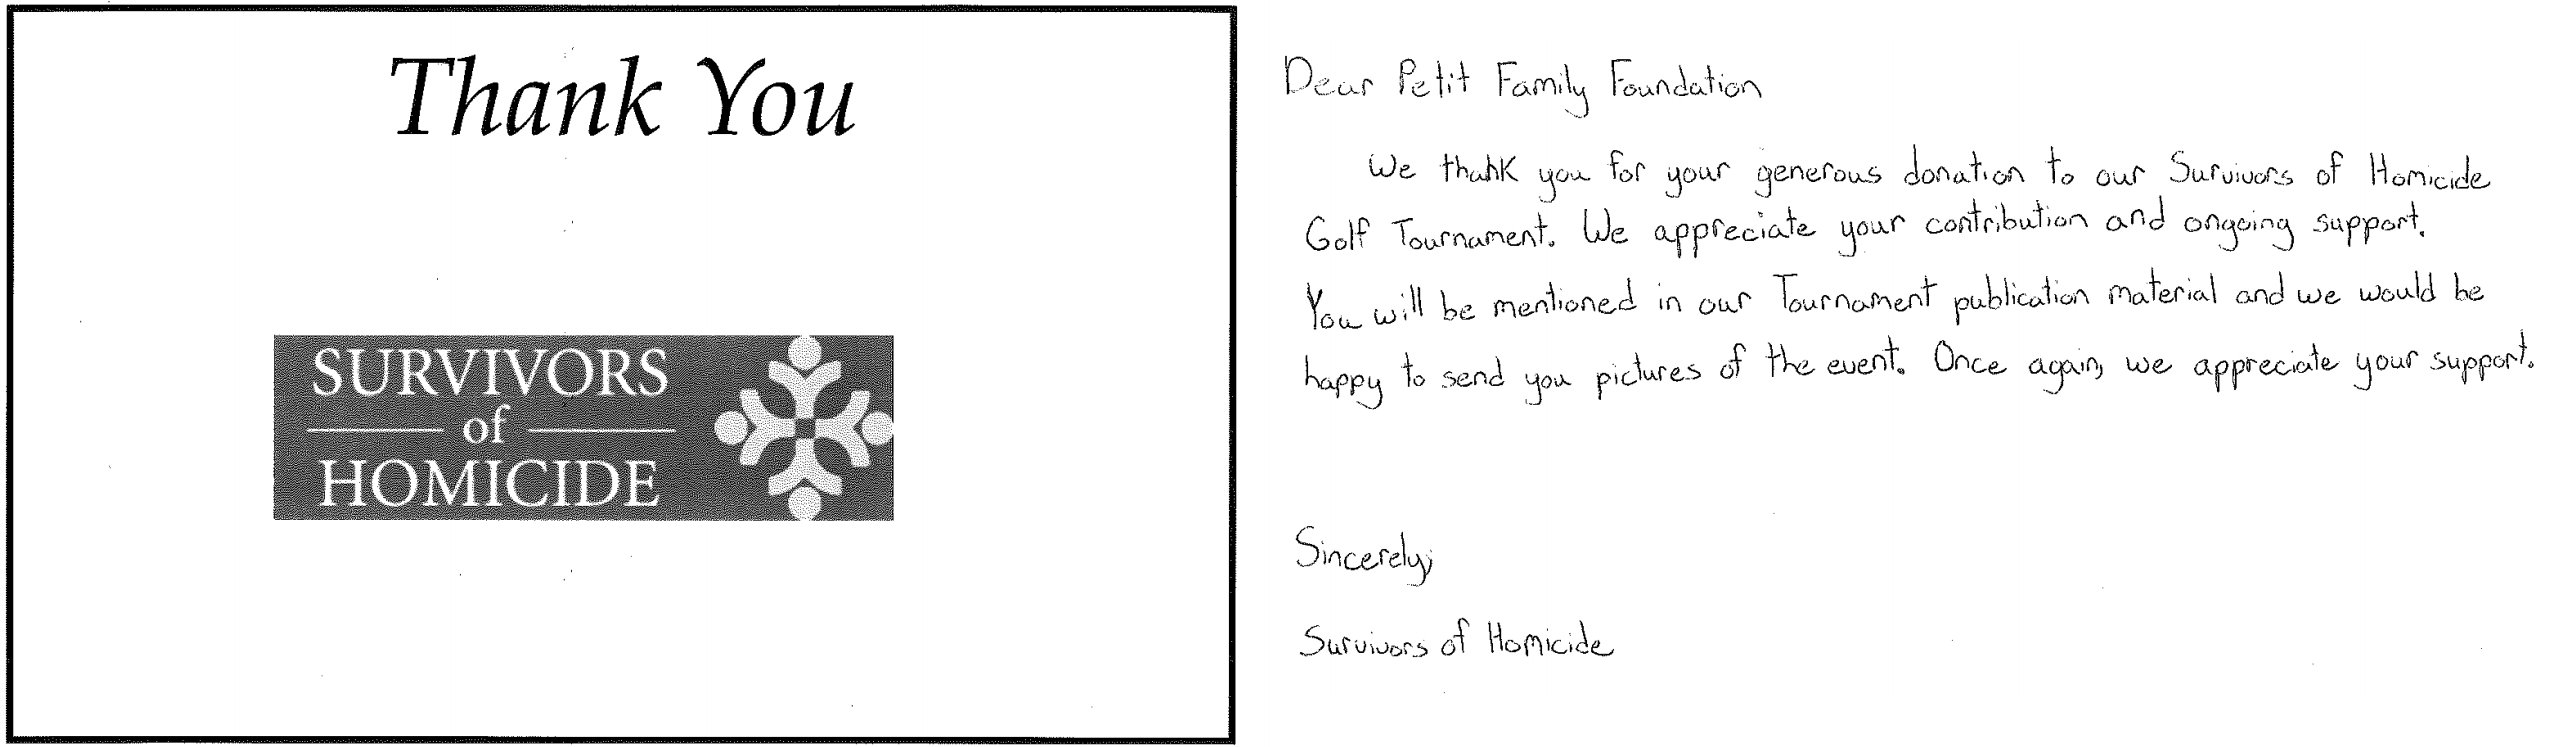 Thank You
SURVIVORS
of
HOMICIDE
Dear Petit Family Foundation
We thank you for your generous donation to our Survivors of Homicide
Golf Tournament. We appreciate your contribution and ongoing support.
You will be mentioned in our Tournament publication material and we would be
happy to send you pictures of the event. Once again, we appreciate your support.
Sincerely,
Survivors of Homicide